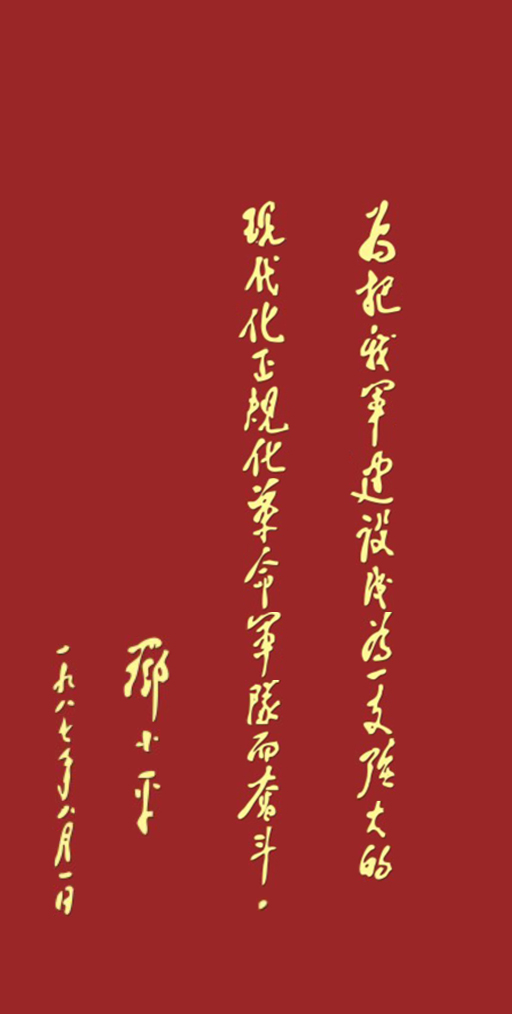 为把我軍建设成为一支强大的
现代化正规化革命軍隊而奋斗.
鄧小平
一九八七年八月一日